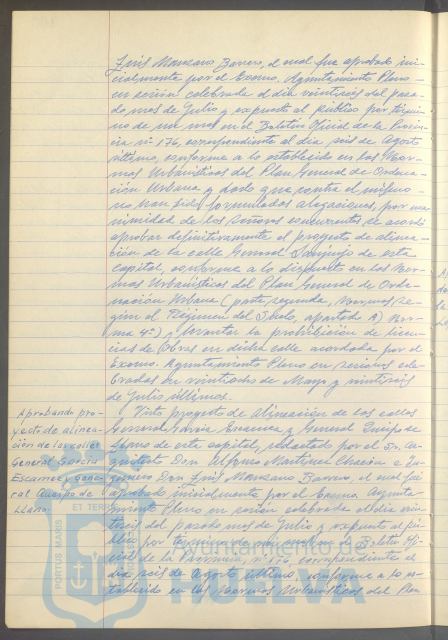 Luis Manzano Barrero, el cual fue aprobado ini-
cialmente por el Excmo. Ayuntamiento Pleno
en sesión celebrada el día veintiséis del pasa-
do mes de Julio y expuesto al público por térmi-
no de un mes en el Boletín Oficial de la Provin-
cia nº 176, correspondiente al día seis de Agosto
último, conforme a lo establecido en las Nor-
mas Urbanísticas del Plan General de Ordena-
ción Urbana y dado que contra el mismo
no han sido formuladas alegaciones, por una-
nimidad de los señores concurrentes se acordó
aprobar definitivamente el proyecto de alinea-
ción de la calle General Sanjurjo de esta
capital, conforme a lo dispuesto en las Nor-
mas Urbanísticas del Plan General de Orde-
nación Urbana (parte segunda, Normas se-
gún el Régimen del Suelo, apartado A) Nor-
ma 4ª), y levanta la prohibición de licen-
cias de Obras en dicha calle acordada por el
Excmo. Ayuntamiento Pleno en sesiones cele-
bradas en veintiocho de Mayo y veintiséis
de Julio últimos.
Aprobando pro-
yecto de alinea-
ción de las calles
General García
Escámez y Gene-
ral Queipo de
Llano.
Visto proyecto de Alineación de las calles
General García Escámez y General Queipo de
Llano de esta capital, redactado por el Sr. Ar-
quitecto Don Alfonso Martínez Chacón e In-
geniero Don Luis Manzano Barrero, el cual fue
aprobado inicialmente por el Excmo. Ayunta-
miento Pleno en sesión celebrada el día vein-
tiséis del pasado mes de Julio y expuesto al pú-
blico por término de un mes en el Boletín Ofi-
cial de la Provincia, nº 176, correspondiente al
día seis de Agosto último, conforme a lo es-
tablecido en las Normas Urbanísticas del Plan
PORTUS MARIS
ET TERRAE
Ayuntamiento de
HUELVA